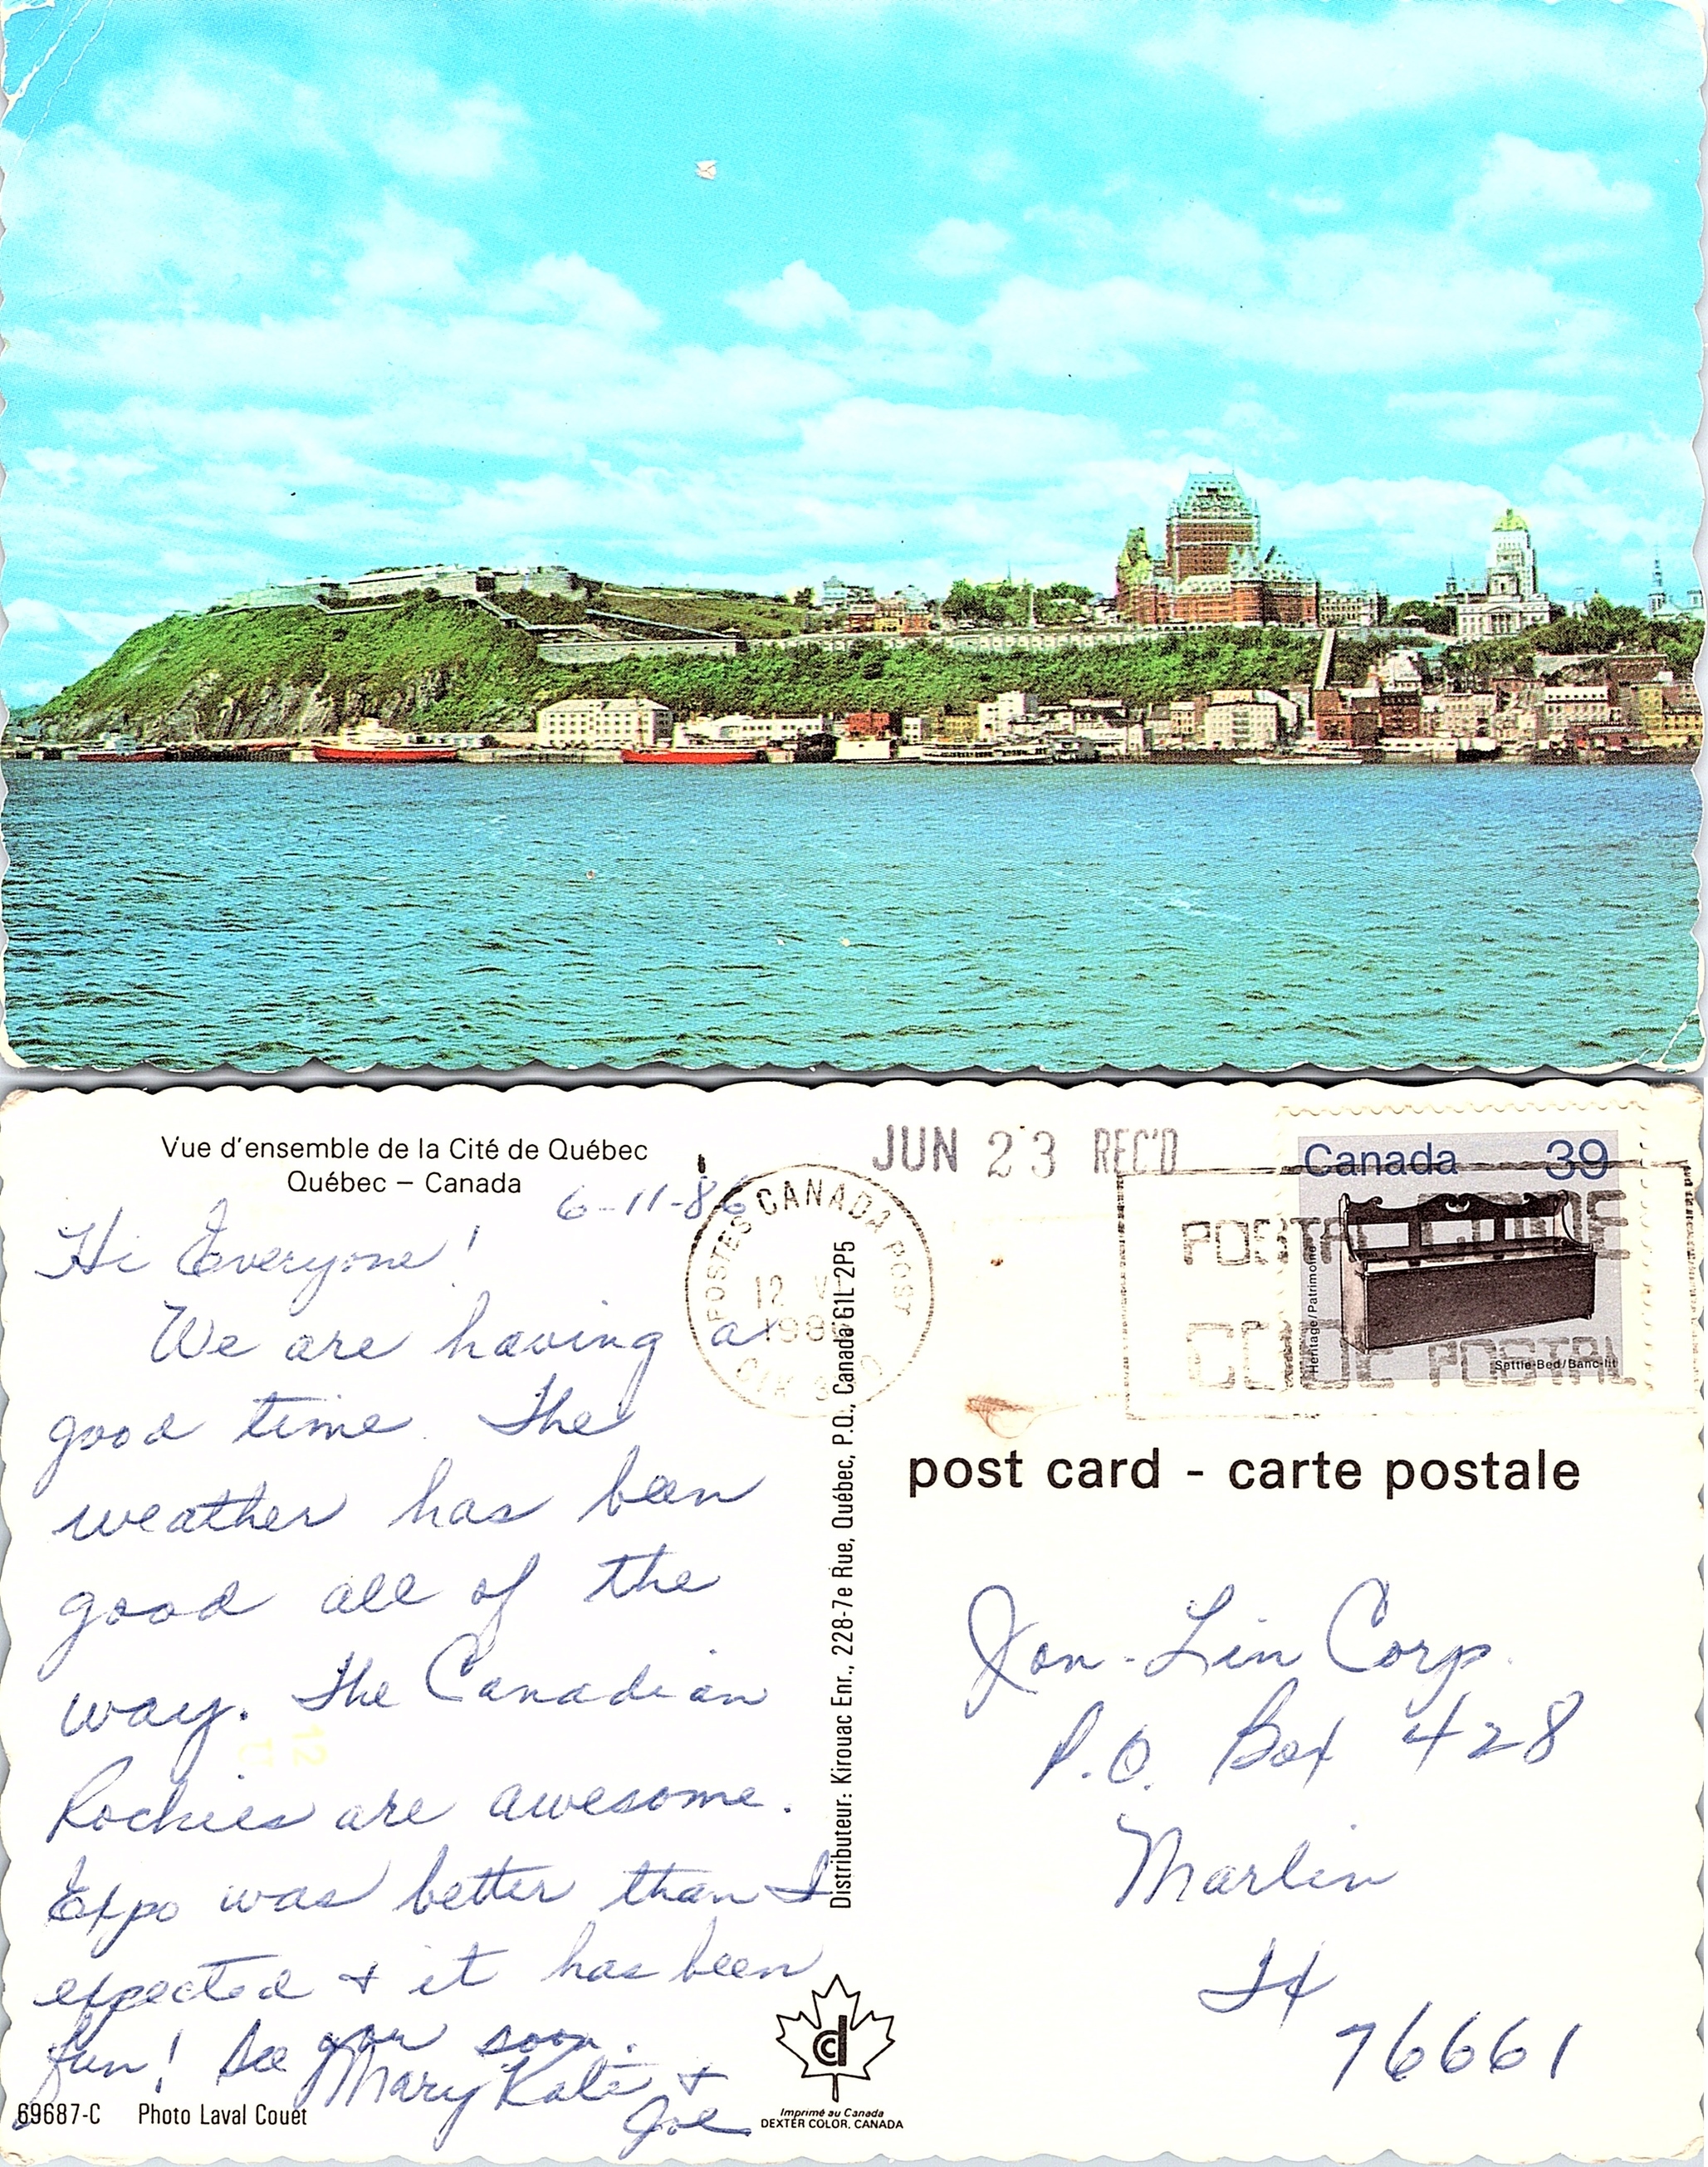 Vue d'ensemble de la Cité de Québec
Québec – Canada
6-11-86
Hi Everyone!
We are having a
good time. The
weather has been
good all of the
way. The Canadian
Rockies are awesome.
Expo was better than I
expected & it has been
fun! See you soon.
Mary Kate &
Joe
69687-C Photo Laval Couet
Distributeur: Kirouac Enr., 228-7e Rue, Québec, P.Q., Canada G1L 2P5
Imprimé au Canada
DEXTER COLOR, CANADA
JUN 23 REC'D
POSTES CANADA POST
12 V
198
Canada 39
Heritage/Patrimoine
Settle-Bed/Banc-lit
POSTAL CODE
CODE POSTAL
post card - carte postale
Jon-Lin Corp.
P.O. Box 428
Marlin
TX
76661